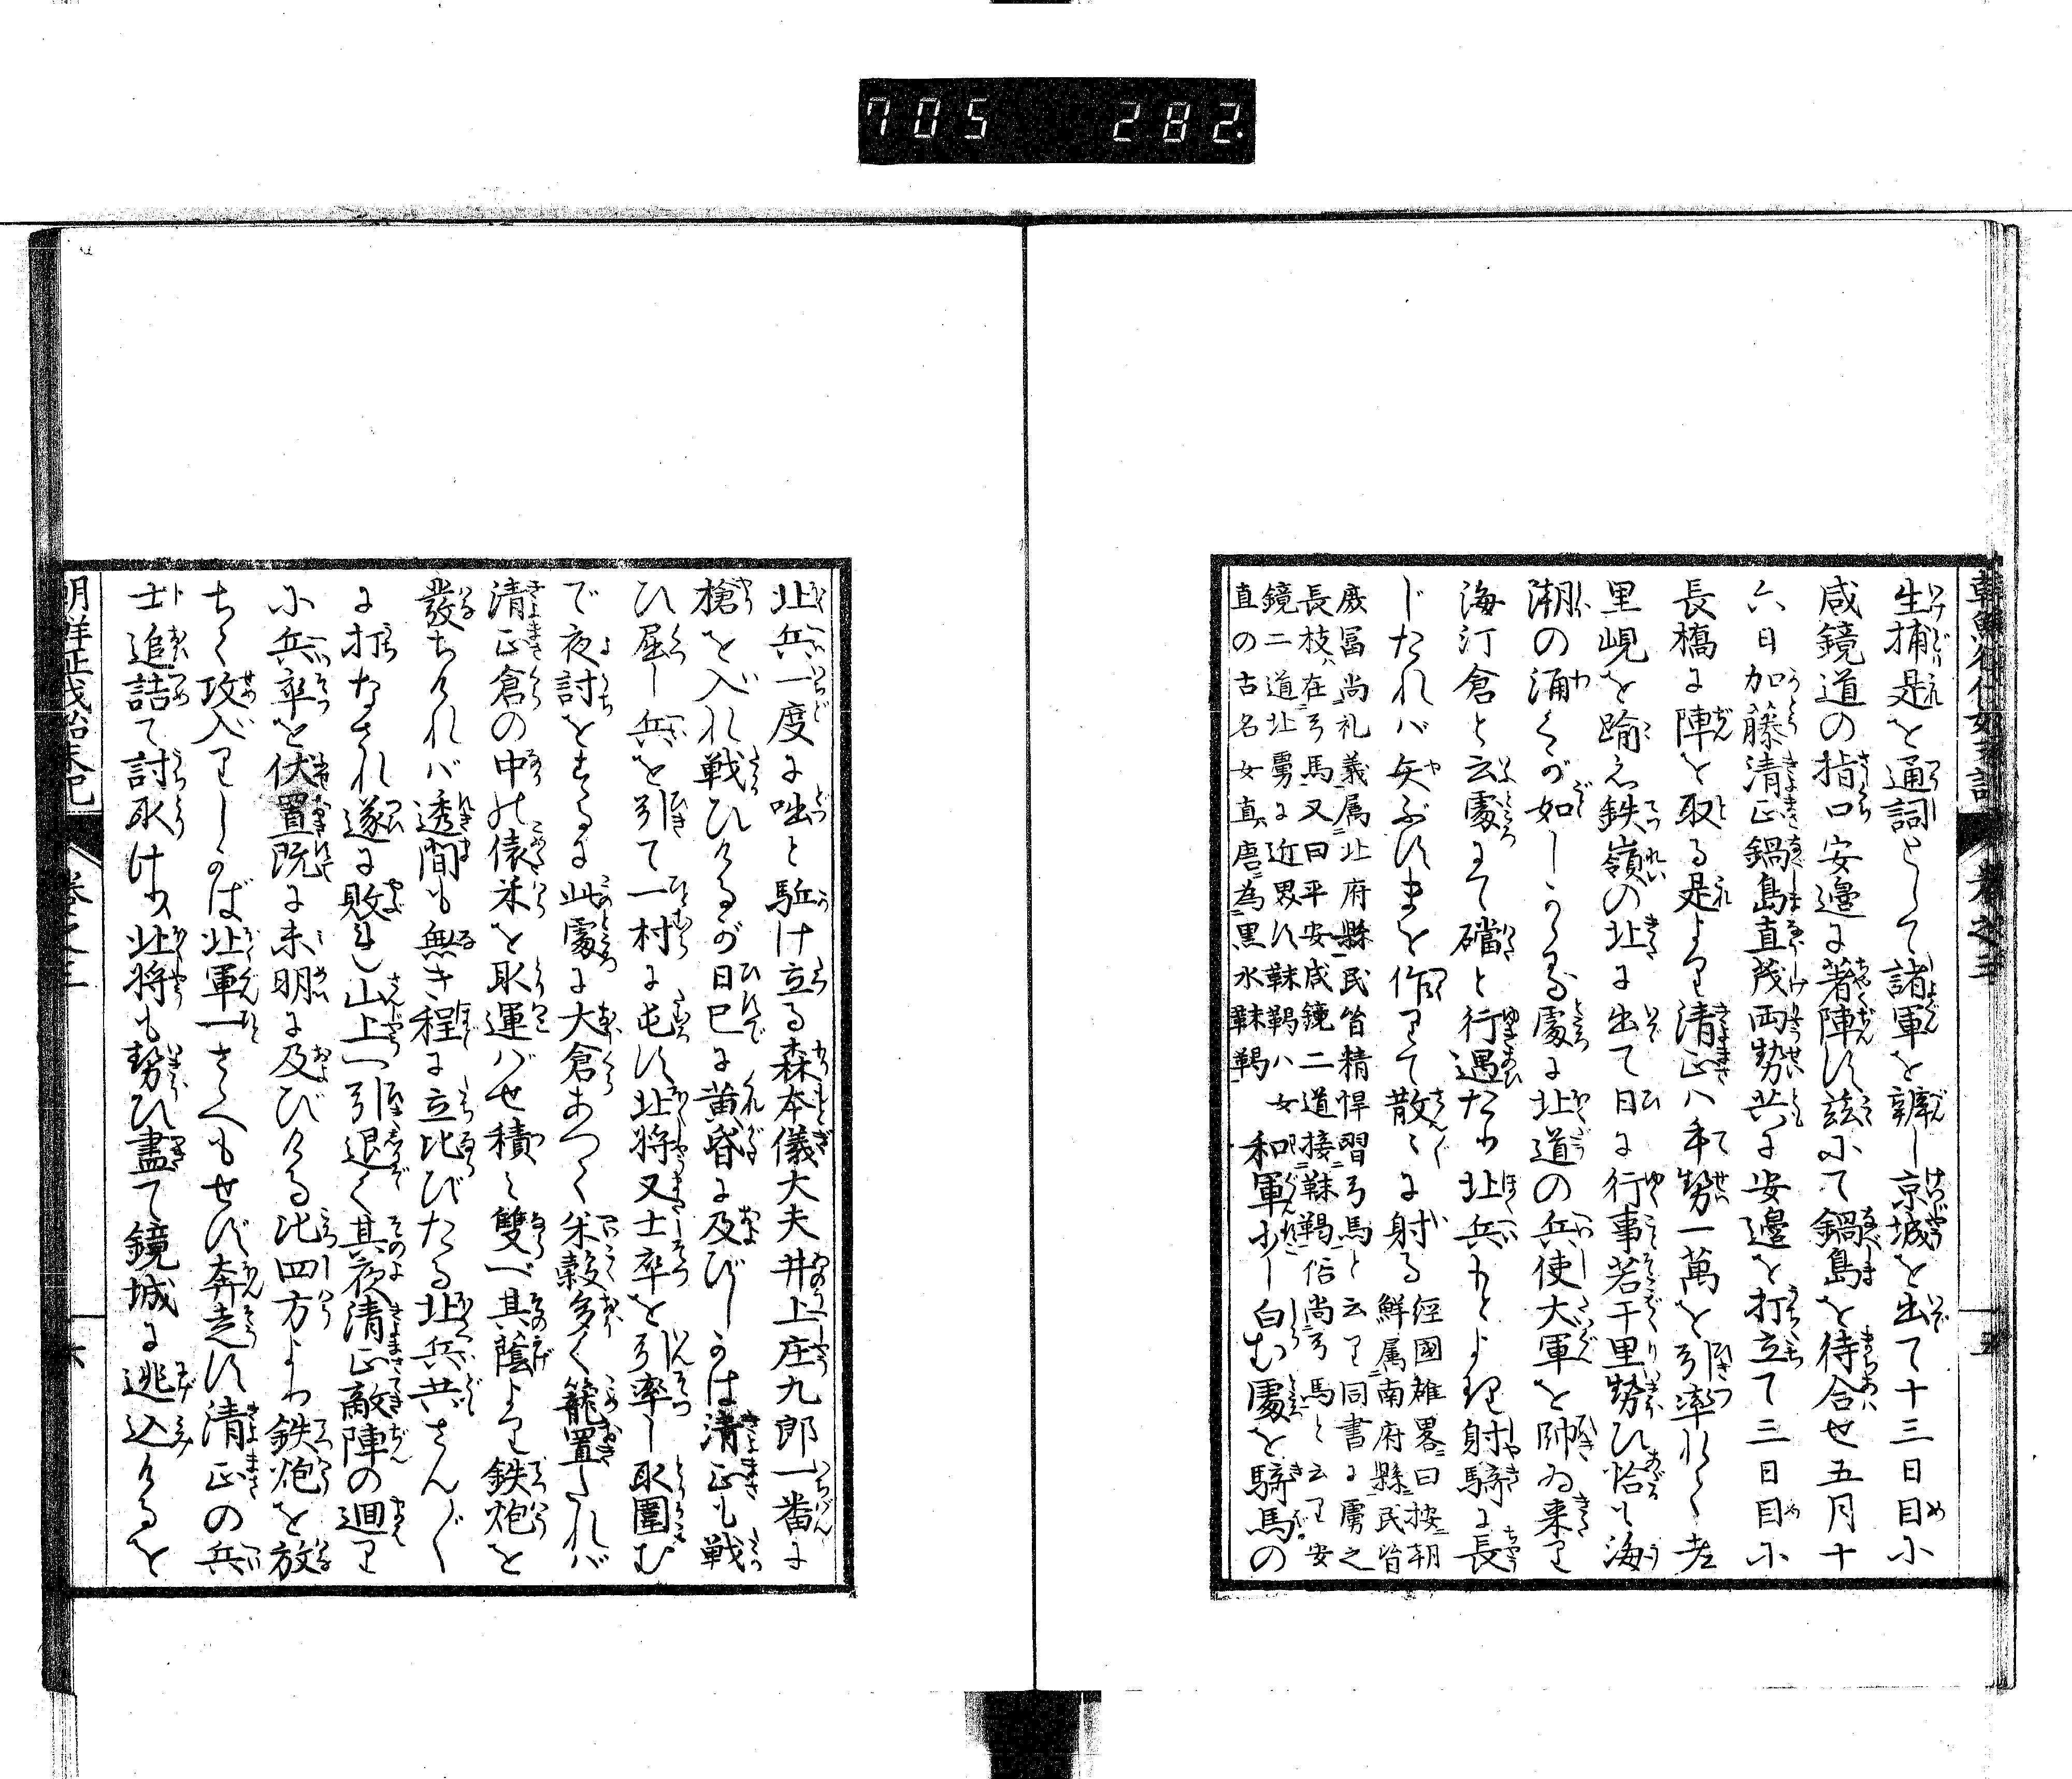 705 282.
生捕是を通詞として諸軍を辨し京城を出て十三日目に
咸鏡道の指口安邉に著陣す茲にて鍋島を待合せ五月十
六日加藤清正鍋島直茂両勢共に安邉を打立て三日目に
長橋に陣を取る是より清正ハ手勢一萬を引率れく老
里峴を踰え鉄嶺の北に出て日に行事若干里勢ひ恰も海
潮の涌くが如しかゝる處に北道の兵使大軍を帥ゐ来り
海汀倉と云處まで礑と行遇たり北兵もとより射騎に長
じたれバ矢ぶすまを作りて散〻に射る
經國雄畧ニ曰按ニ朝
鮮属南府縣ニ民皆
庶冨尚礼義属北府縣民皆精悍習弓馬と云り同書に虜之
長枝ハ在弓馬又曰平安咸鏡二道接ニ靺鞨俗尚弓馬と云り安
鏡二道北虜に近界す靺鞨ハ女
直の古名女真唐為黒水靺鞨
和軍少し白む處を騎馬の
北兵一度に咄と駈け立る森本儀大夫井上庄九郎一番に
槍を入れ戦ひけるが日已に黄昏に及びしかは清正も戦
ひ屈し兵を引て一村に屯す北将又士卒を引率し取圍む
で夜討をするに此處に大倉あつく米穀多く籠置たれバ
清正倉の中の俵米を取運バせ積〻雙べ其蔭より鉄炮を
發ちけれバ透間も無き程に立比びたる北兵共さん〴〵
に打なされ遂に敗れ山上へ引退く其夜清正敵陣の廻り
に兵卒を伏置既に未明に及びける比四方より鉄炮を放
ちく攻入りしかば北軍一さゝへもせず奔走す清正の兵
士追詰て討取けり北将も勢ひ盡て鏡城に逃込けるを
卷之三
六